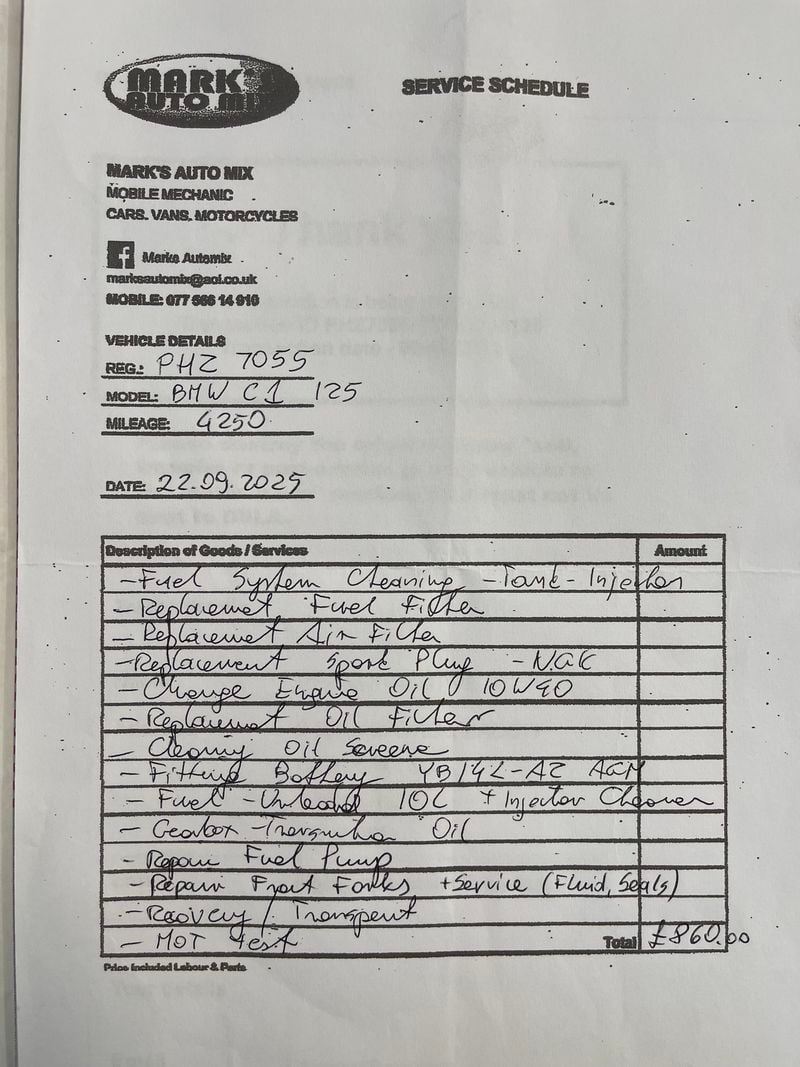 MARK'S
AUTO MIX
SERVICE SCHEDULE
MARK'S AUTO MIX
MOBILE MECHANIC
CARS. VANS. MOTORCYCLES
Marks Automix
marksautomix@aol.co.uk
MOBILE: 077 566 14 910
VEHICLE DETAILS
REG.: PHZ 7055
MODEL: BMW C1 125
MILEAGE: 4250
DATE: 22.09.2025
Description of Goods / Services Amount
- Fuel System Cleaning - Tank - Injector
- Replacemet Fuel Filter
- Replacemet Air Filter
- Replacement Spark Plug - NGK
- Change Engine Oil 10W40
- Replacemet Oil Filter
- Cleaning Oil Screene
- Fitting Battery YB14L-A2 AGM
- Fuel - Unleaded 10L + Injector Cleaner
- Gearbox - Oil
- Repair Fuel Pump
- Repair Front Forks + Service (Fluid, Seals)
- Recovery / Transport
- MOT Test
Total £860.00
Price Included Labour & Parts